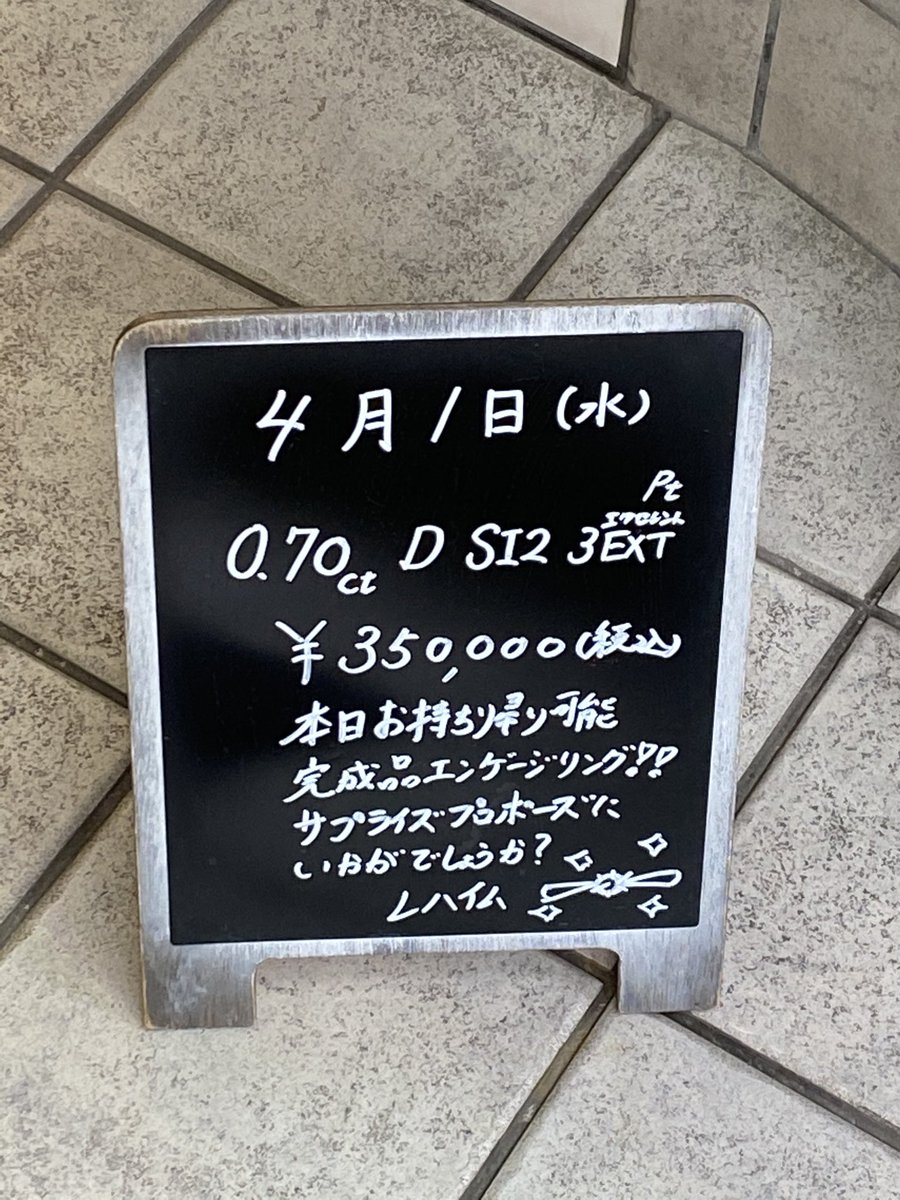 4月1日(水)
Pt
エクセレント
0.70ct D SI2 3EXT
¥350,000(税込)
本日お持ち帰り可能
完成品エンゲージリング!!
サプライズプロポーズに
いかがでしょうか?
レハイム